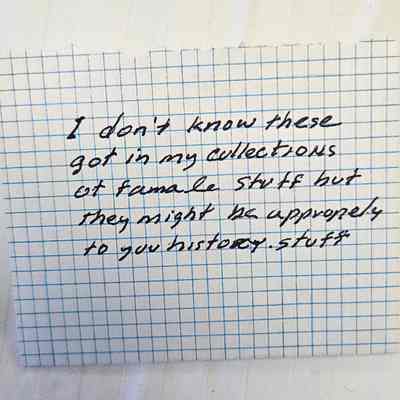 I don't know these
got in my cullections
of famale stuff but
they might be appropely
to you history.stuff